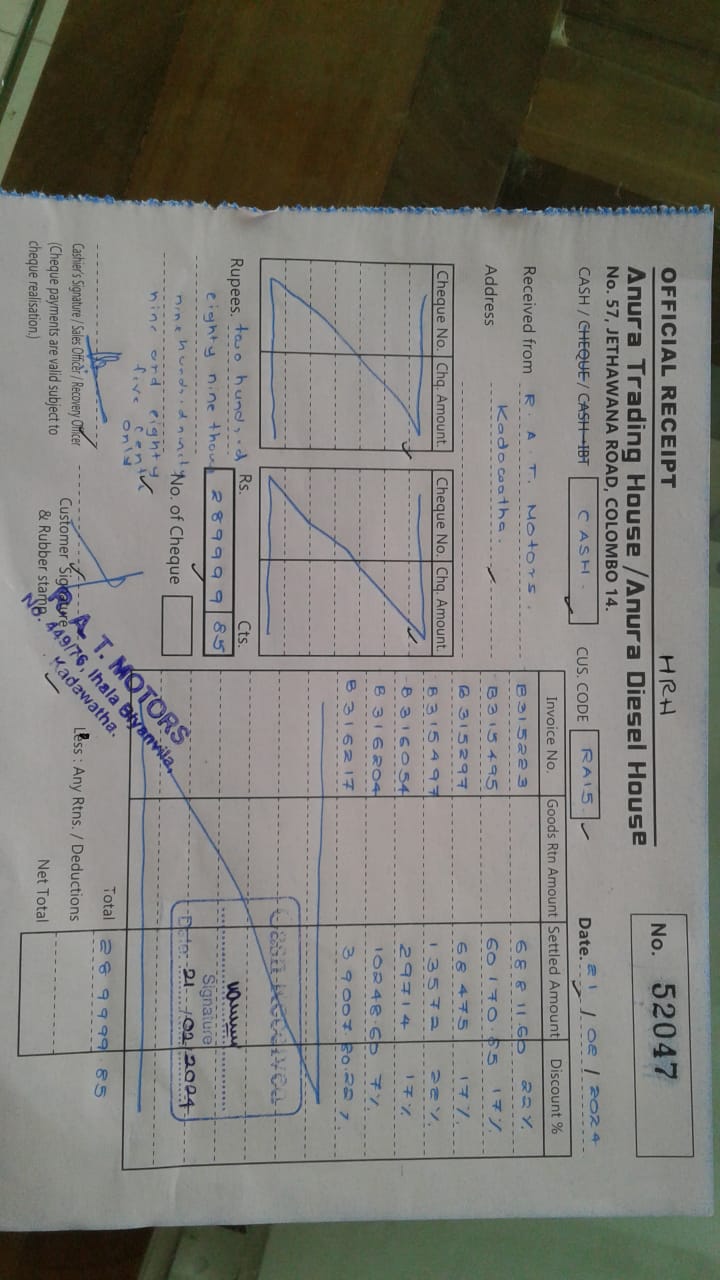 OFFICIAL RECEIPT HRH
No. 52047
Anura Trading House /Anura Diesel House
No. 57, JETHAWANA ROAD, COLOMBO 14.
CASH / CHEQUE / CASH-IBT CASH. CUS. CODE RA15. Date. 21 / 02 / 2024
Received from R. A. T. Motors.
Address Kadawatha.
Cheque No. Chq. Amount. Cheque No. Chq. Amount.
Invoice No. Goods Rtn Amount Settled Amount Discount %
B315223 68811.60 22%
B315495 60170.85 17%
B315297 68475 17%
B315497 13572 22%
B316054 29714 17%
B316204 10248.60 7%
B316217 39007.80 22%
Rupees. two hundred
eighty nine thou
nine hundred ninety
nine and eighty
five cents
only
Rs. Cts.
289999 85
No. of Cheque
Cash Received
Signature
Date: 21/02/2024
Cashier's Signature / Sales Officer / Recovery Officer
(Cheque payments are valid subject to
cheque realisation.)
Customer Signature
& Rubber stamp
A. T. MOTORS
No. 449/76, Ihala Biyanvila,
Kadawatha.
Total 289999.85
Less : Any Rtns. / Deductions
Net Total